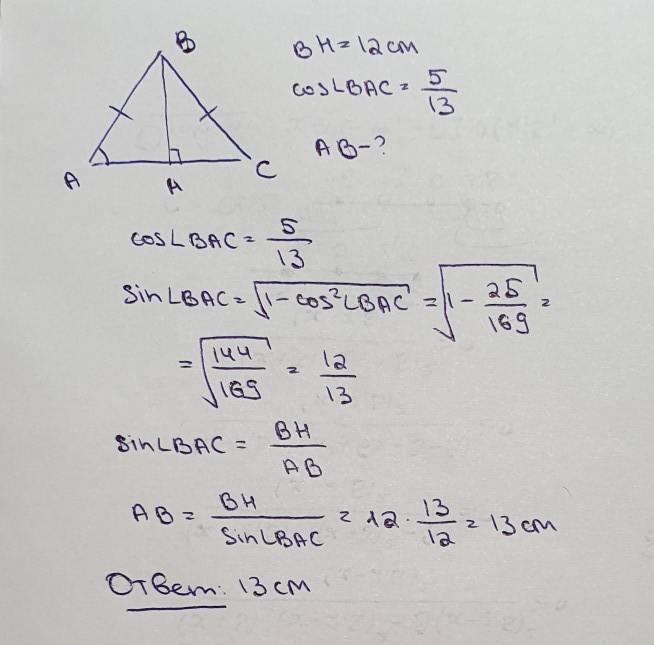 B
A
H
C
BH=12см
cos∠BAC = 5/13
AB-?
cos∠BAC = 5/13
sin∠BAC = √(1-cos²∠BAC) = √(1 - 25/169) =
= √(144/169) = 12/13
sin∠BAC = BH/AB
AB = BH/sin∠BAC = 12 · 13/12 = 13см
Ответ: 13см